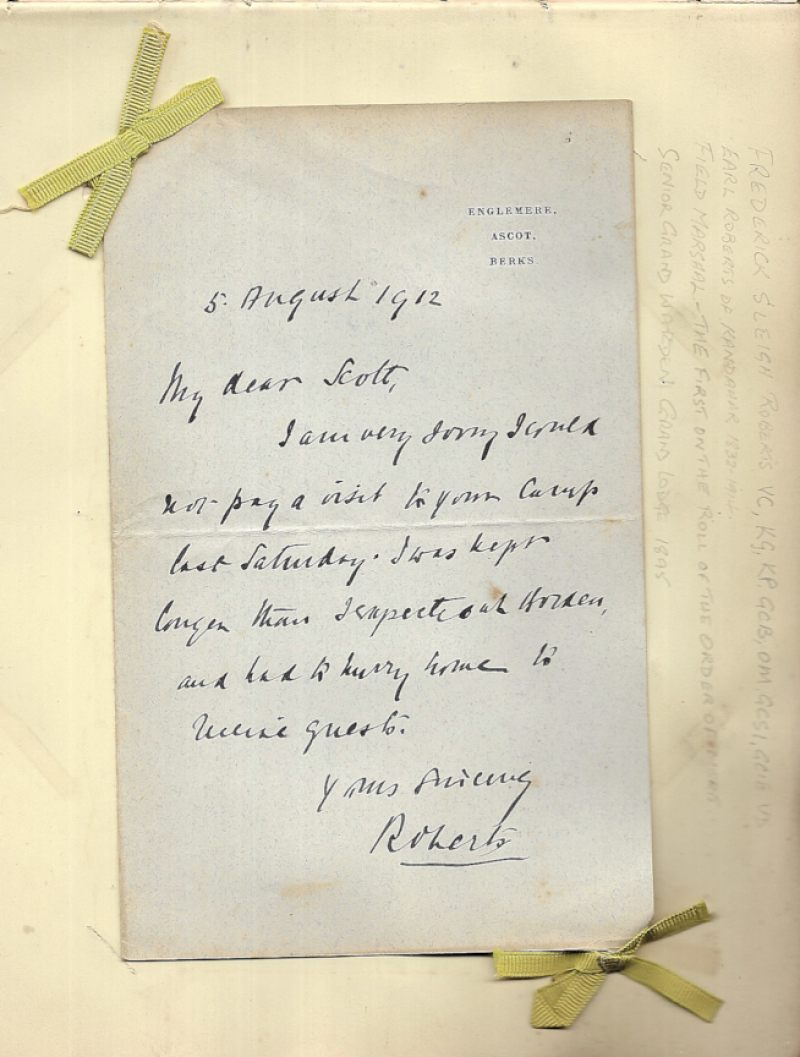 ENGLEMERE,
ASCOT,
BERKS.
5. August 1912
My dear Scott,
I am very sorry I could
not pay a visit to your Camp
last Saturday. I was kept
longer than I expected at Borden,
and had to hurry home to
receive guests.
Yours Sincerely
Roberts
FREDERICK SLEIGH ROBERTS VC, KG, KP, GCB, OM, GCSI, GCIE VD
EARL ROBERTS OF KANDAHAR 1832-1914
FIELD MARSHAL - THE FIRST ON THE ROLL OF THE ORDER OF MERIT
SENIOR GRAND WARDEN GRAND LODGE 1895